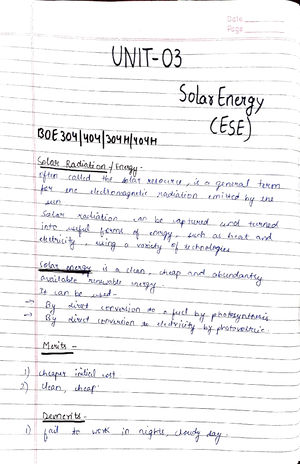 Date
Page
UNIT-03
Solar Energy
(ESE)
BOE304/404/304H/404H
Solar Radiation/Energy-
often called the solar resource, is a general term
for the electromagnetic radiation emitted by the
sun
Solar radiation can be captured and turned
into useful forms of energy, such as heat and
electricity, using a variety of technologies.
Solar energy is a clean, cheap and abundantly
available renewable energy.
It can be used-
→ By direct conversion to a fuel by photosynthesis
→ By direct conversion to electricity by photovoltaic.
Merits -
1) cheaper initial cost
2) clean, cheap
Demerits -
1) fail to work in nights, cloudy day.